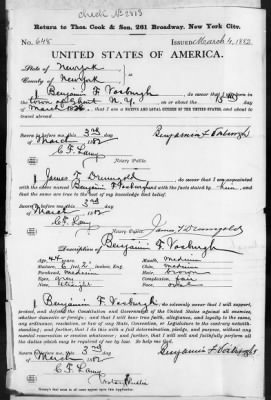 Check No 2813
Return to Thos Cook & Son, 261 Broadway, New York City.
No. 648 ISSUED March 4, 1882
UNITED STATES OF AMERICA.
State of New York
County of New York
I, Benjamin F. Vosburgh, do swear that I was born in the
town of Ghent N.Y., on or about the 15th day
of March, that I am a NATIVE AND LOYAL CITIZEN OF THE UNITED STATES, and about to
travel abroad.
Sworn to before me this 3rd
day of March 1882
Benjamin F Vosburgh
C. F. Lamy
Notary Public
I, James T. Drumgold, do swear that I am acquainted with
the above named Benjamin F. Vosburgh and with the facts stated by him, and
that the same are true to the best of my knowledge and belief.
Sworn to before me this 3rd
day of March 1882
James T Drumgold
C. F. Lamy
Notary Public
Description of Benjamin F. Vosburgh
Age, Mouth, medium
Stature, 6 feet, 2 inches, Eng. Chin, medium
Forehead, medium Hair, brown
Eyes, grey Complexion, fair
Nose, straight Face, oval
I, Benjamin F. Vosburgh, do solemnly swear that I will support,
protect and defend the Constitution and Government of the United States against all enemies,
whether domestic or foreign; and that I will bear true faith, allegiance, and loyalty to the same,
any ordinance, resolution, or law of any State, Convention, or Legislature to the contrary notwith-
standing; and further, that I do this with a full determination, pledge, and purpose, without any
mental reservation or evasion whatsoever; and further, that I will well and faithfully perform all
the duties which may be required of me by law. So help me God.
Sworn to before me this 3rd
day of March 1882
Benjamin F Vosburgh
C. F. Lamy
Notary Public